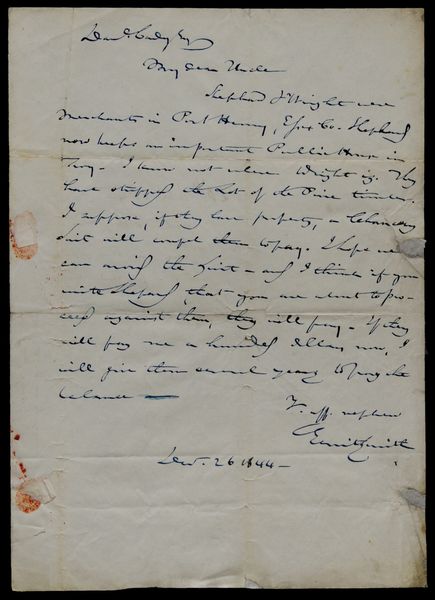 Dan'l. Cady Esq
My dear Uncle
Shephard & Wright were
Merchants in Port Henry, Essex Co. Shephard
now keeps an important Public House in
Troy. I know not where Wright is. They
have stripped the Lot of the Pine timber.
I suppose, if they have property, a Chancery
suit will compel them to pay. I hope we
can avoid the suit – and I think if you
write Shephard, that you are about to pro-
ceed against them, they will pay. If they
will pay me a hundred dollars now, I
will give them several years to pay the
balance —
Y. aff. nephew
Gerrit Smith
Dec. 26 1844 –